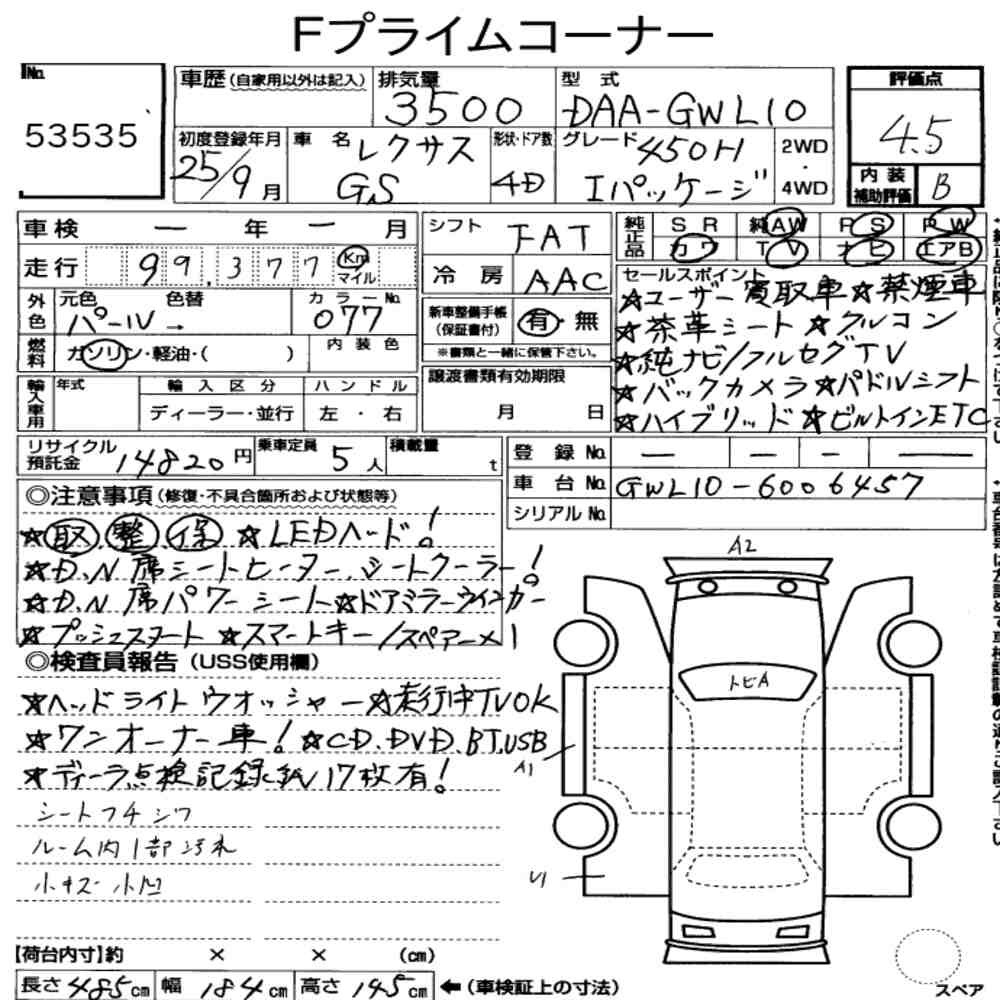 Fプライムコーナー
No.
53535
車歴(自家用以外は記入)
排気量
3500
型 式
DAA-GWL10
評価点
4.5
初度登録年月
25/9月
車 名
レクサス
GS
形状・ドア数
4D
グレード
450H
Iパッケージ
2WD
・
4WD
内 装
補助評価
B
車検 ー 年 ー 月
走行 99,377 Km マイル
シフト FAT
冷 房 AAC
純正品
SR 純AW PS PW
カワ TV ナビ エアB
外色
元色 色替
パール→
カラーNo.
077
燃料
ガソリン・軽油・( )
内 装 色
新車整備手帳
(保証書付)
有・無
※書類と一緒に保管下さい。
セールスポイント
☆ユーザー買取車☆禁煙車
☆茶革シート☆クルコン
☆純ナビ/フルセグTV
☆バックカメラ☆パドルシフト
☆ハイブリッド☆ビルトインETC
輸入車用
年式
輸 入 区 分
ディーラー・並行
ハ ン ド ル
左 ・ 右
譲渡書類有効期限
月 日
リサイクル
預託金
14820円
乗車定員
5人
積載量
t
登 録 No. ー ー ー ー
車 台 No. GWL10-6006457
シリアルNo.
◎注意事項(修復・不具合箇所および状態等)
☆取 整 保 ☆LEDヘッド!
☆D.N席シートヒーター、シートクーラー!
☆D.N席パワーシート☆ドアミラーウインカー
☆プッシュスタート☆スマートキー/スペアー×1
◎検査員報告(USS使用欄)
☆ヘッドライトウオッシャー☆走行中TVOK
☆ワンオーナー車!☆CD、DVD、BT、USB
☆ディーラ点検記録紙17枚有!
シートフチシワ
ルーム内1部汚れ
小キズ小凹
A2
トビA
A1
U1
【荷台内寸】約 × × (cm)
長さ485cm 幅184cm 高さ145cm ←(車検証上の寸法)
スペア